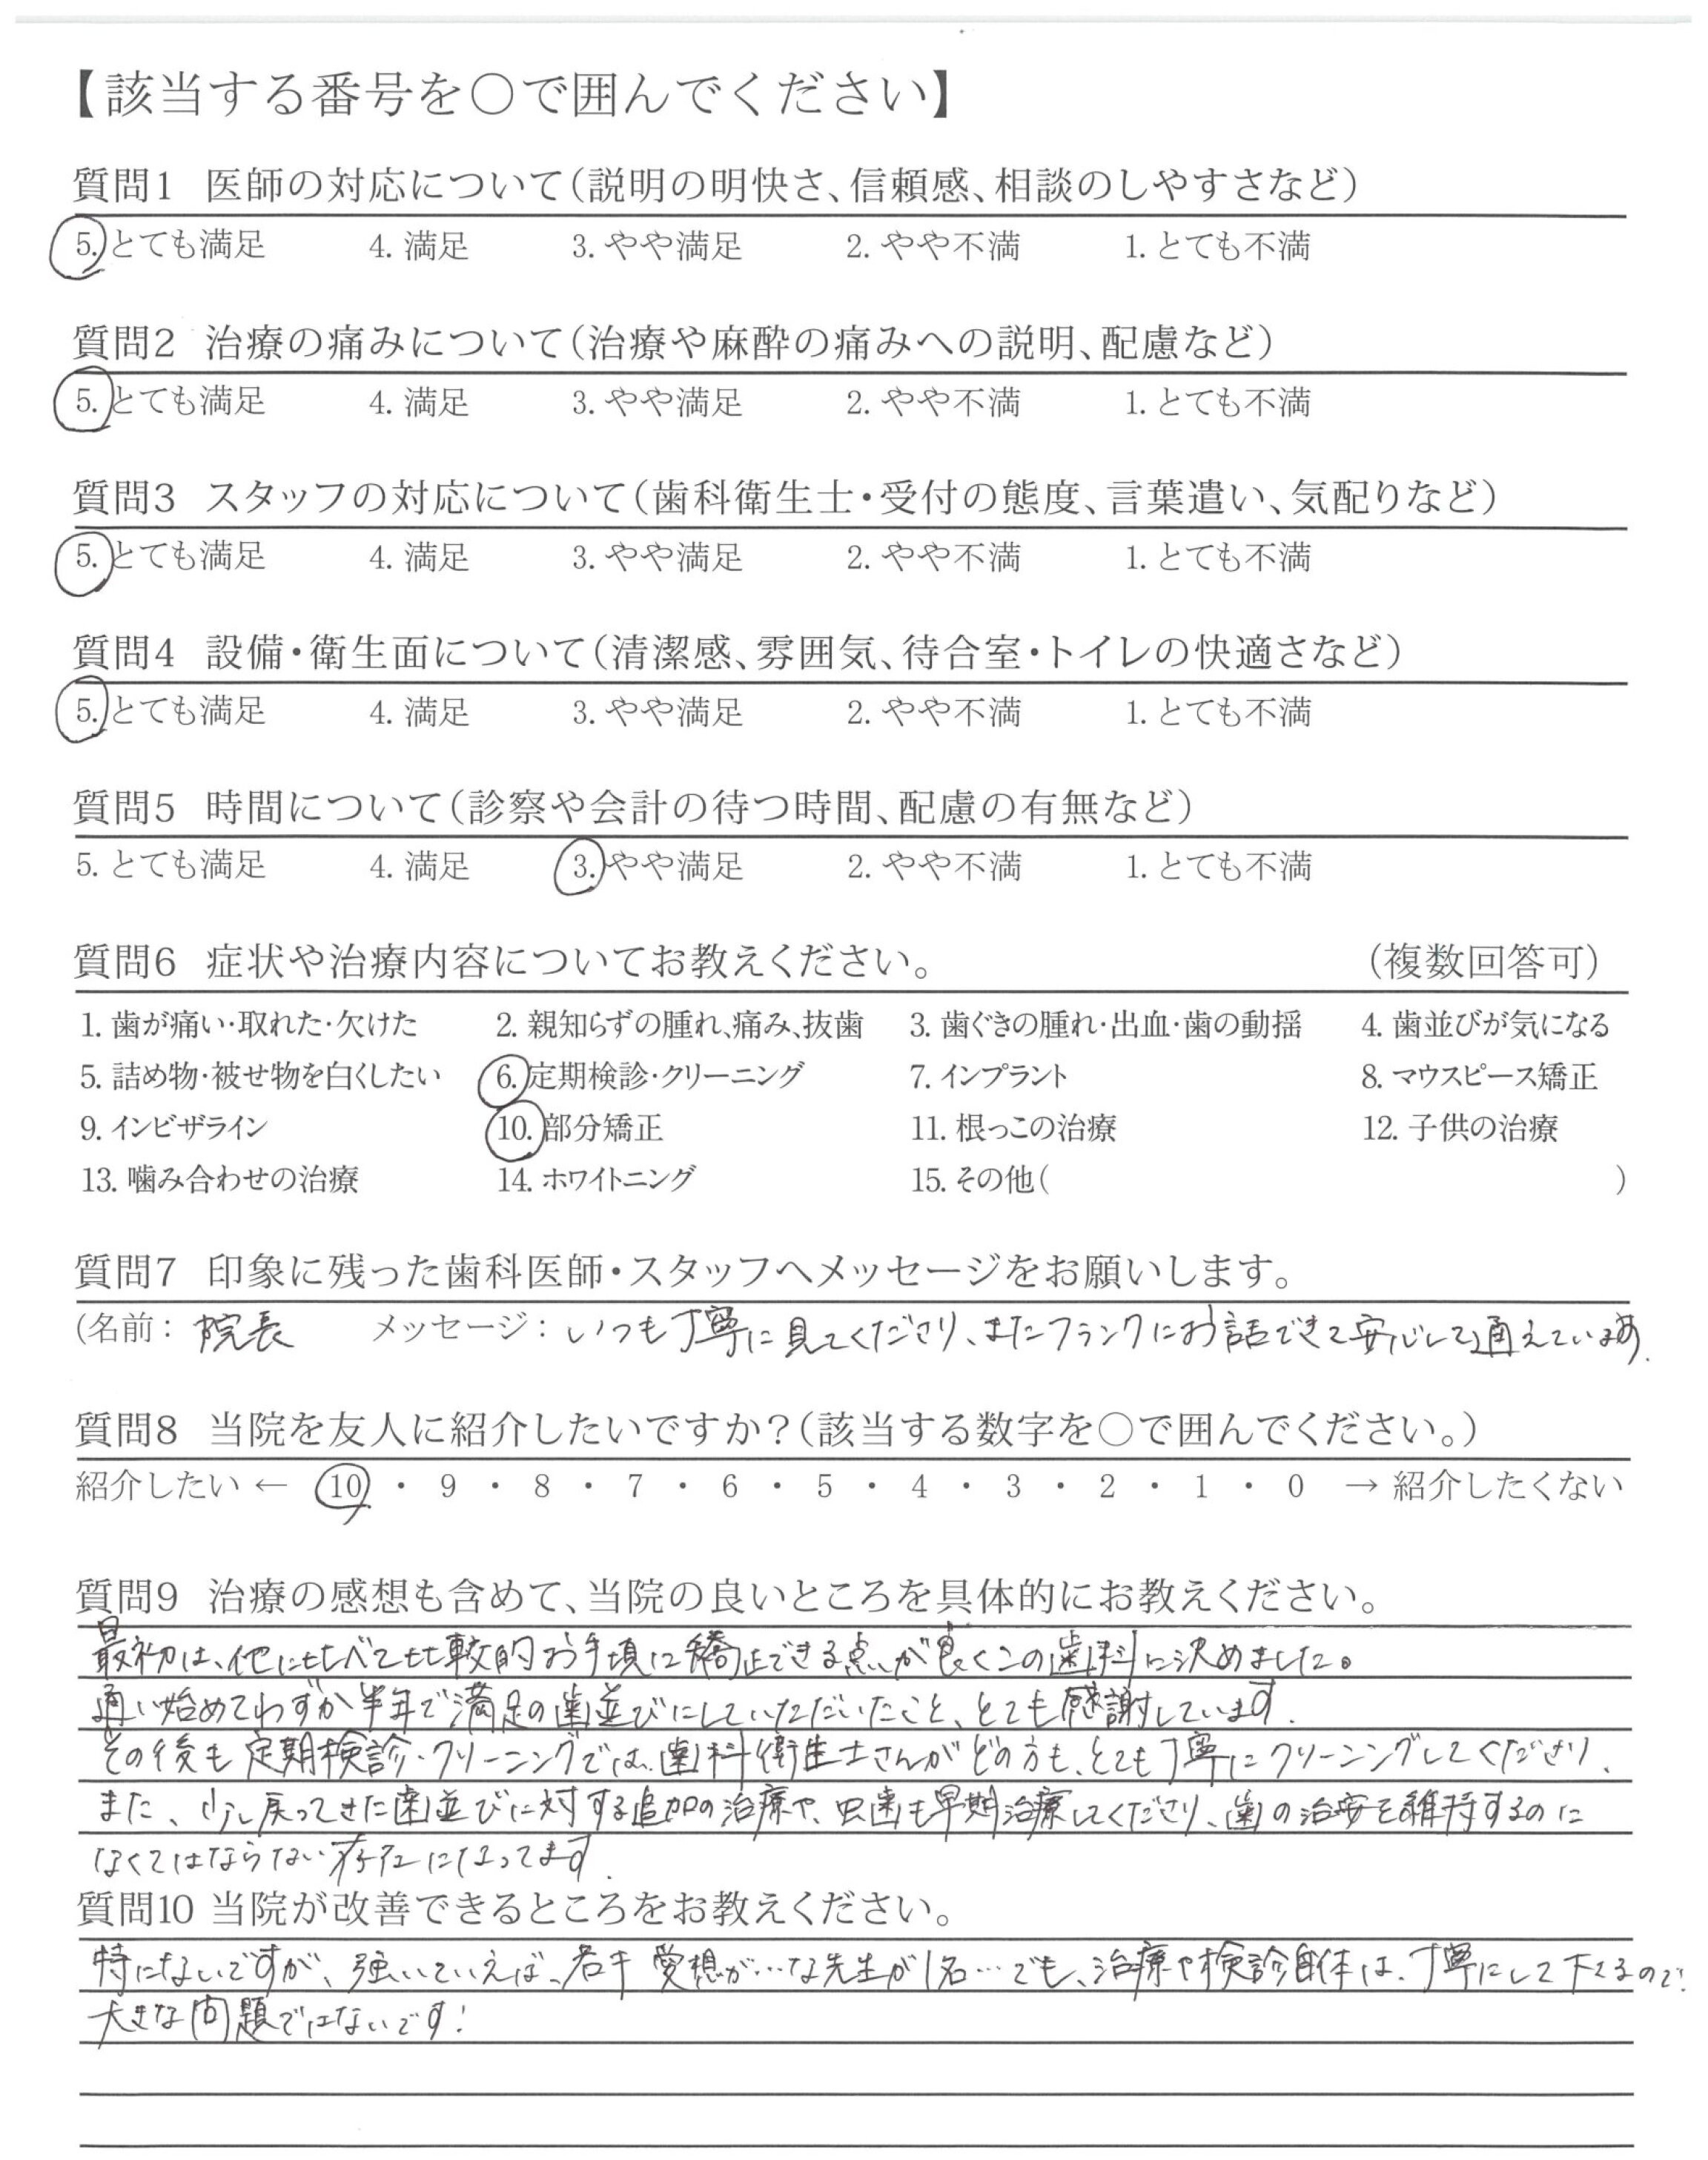 【該当する番号を○で囲んでください】
質問1 医師の対応について(説明の明快さ、信頼感、相談のしやすさなど)
5. とても満足 4. 満足 3. やや満足 2. やや不満 1. とても不満
質問2 治療の痛みについて(治療や麻酔の痛みへの説明、配慮など)
5. とても満足 4. 満足 3. やや満足 2. やや不満 1. とても不満
質問3 スタッフの対応について(歯科衛生士・受付の態度、言葉遣い、気配りなど)
5. とても満足 4. 満足 3. やや満足 2. やや不満 1. とても不満
質問4 設備・衛生面について(清潔感、雰囲気、待合室・トイレの快適さなど)
5. とても満足 4. 満足 3. やや満足 2. やや不満 1. とても不満
質問5 時間について(診察や会計の待つ時間、配慮の有無など)
5. とても満足 4. 満足 3. やや満足 2. やや不満 1. とても不満
質問6 症状や治療内容についてお教えください。 (複数回答可)
1. 歯が痛い・取れた・欠けた 2. 親知らずの腫れ、痛み、抜歯 3. 歯ぐきの腫れ・出血・歯の動揺 4. 歯並びが気になる
5. 詰め物・被せ物を白くしたい 6. 定期検診・クリーニング 7. インプラント 8. マウスピース矯正
9. インビザライン 10. 部分矯正 11. 根っこの治療 12. 子供の治療
13. 噛み合わせの治療 14. ホワイトニング 15. その他( )
質問7 印象に残った歯科医師・スタッフへメッセージをお願いします。
(名前: 院長 メッセージ: いつも丁寧に見てくださり、またフランクにお話できて安心して通えています.
質問8 当院を友人に紹介したいですか?(該当する数字を○で囲んでください。)
紹介したい ← 10 ・ 9 ・ 8 ・ 7 ・ 6 ・ 5 ・ 4 ・ 3 ・ 2 ・ 1 ・ 0 → 紹介したくない
質問9 治療の感想も含めて、当院の良いところを具体的にお教えください。
最初は、他に比べて比較的お手頃に矯正できる点が良くこの歯科に決めました。
通い始めてわずか半年で満足の歯並びにしていただいたこと、とても感謝しています.
その後も定期検診・クリーニングでは、歯科衛生士さんがどの方も、とても丁寧にクリーニングしてくださり、
また、少し戻ってきた歯並びに対する追加の治療や、虫歯も早期治療してくださり、歯の治安を維持するのに
なくてはならない存在になってます.
質問10 当院が改善できるところをお教えください。
特にないですが、強いていえば、若干 愛想が…な先生が1名…でも、治療や検診自体は、丁寧にして下さるので.
大きな問題ではないです!